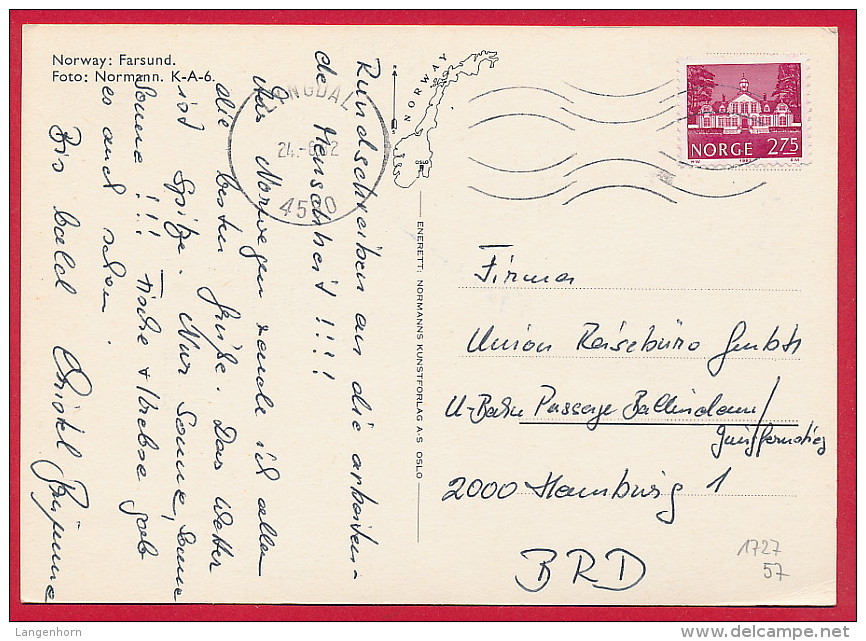 Norway: Farsund.
Foto: Normann. K-A-6.
Rundschreiben an die arbeiten-
de Menschheit !!!!
Aus Norwegen sende ich allen
die besten Grüße. Das Wetter
ist Spitze. Nur Sonne, Sonne
Sonne !!! Fische + Krebse gab
es auch schon.
Bis bald Christl
LYNGDAL
24.
4580
NORWAY
OSLO
NORGE 275
ENERETT: NORMANNS KUNSTFORLAG A-S OSLO
Firma
Union Reisebüro GmbH
U-Bahn Passage Ballindamm/
Jungfernstieg
2000 Hamburg 1
BRD
1727
57
Langenhorn
www.delcampe.net